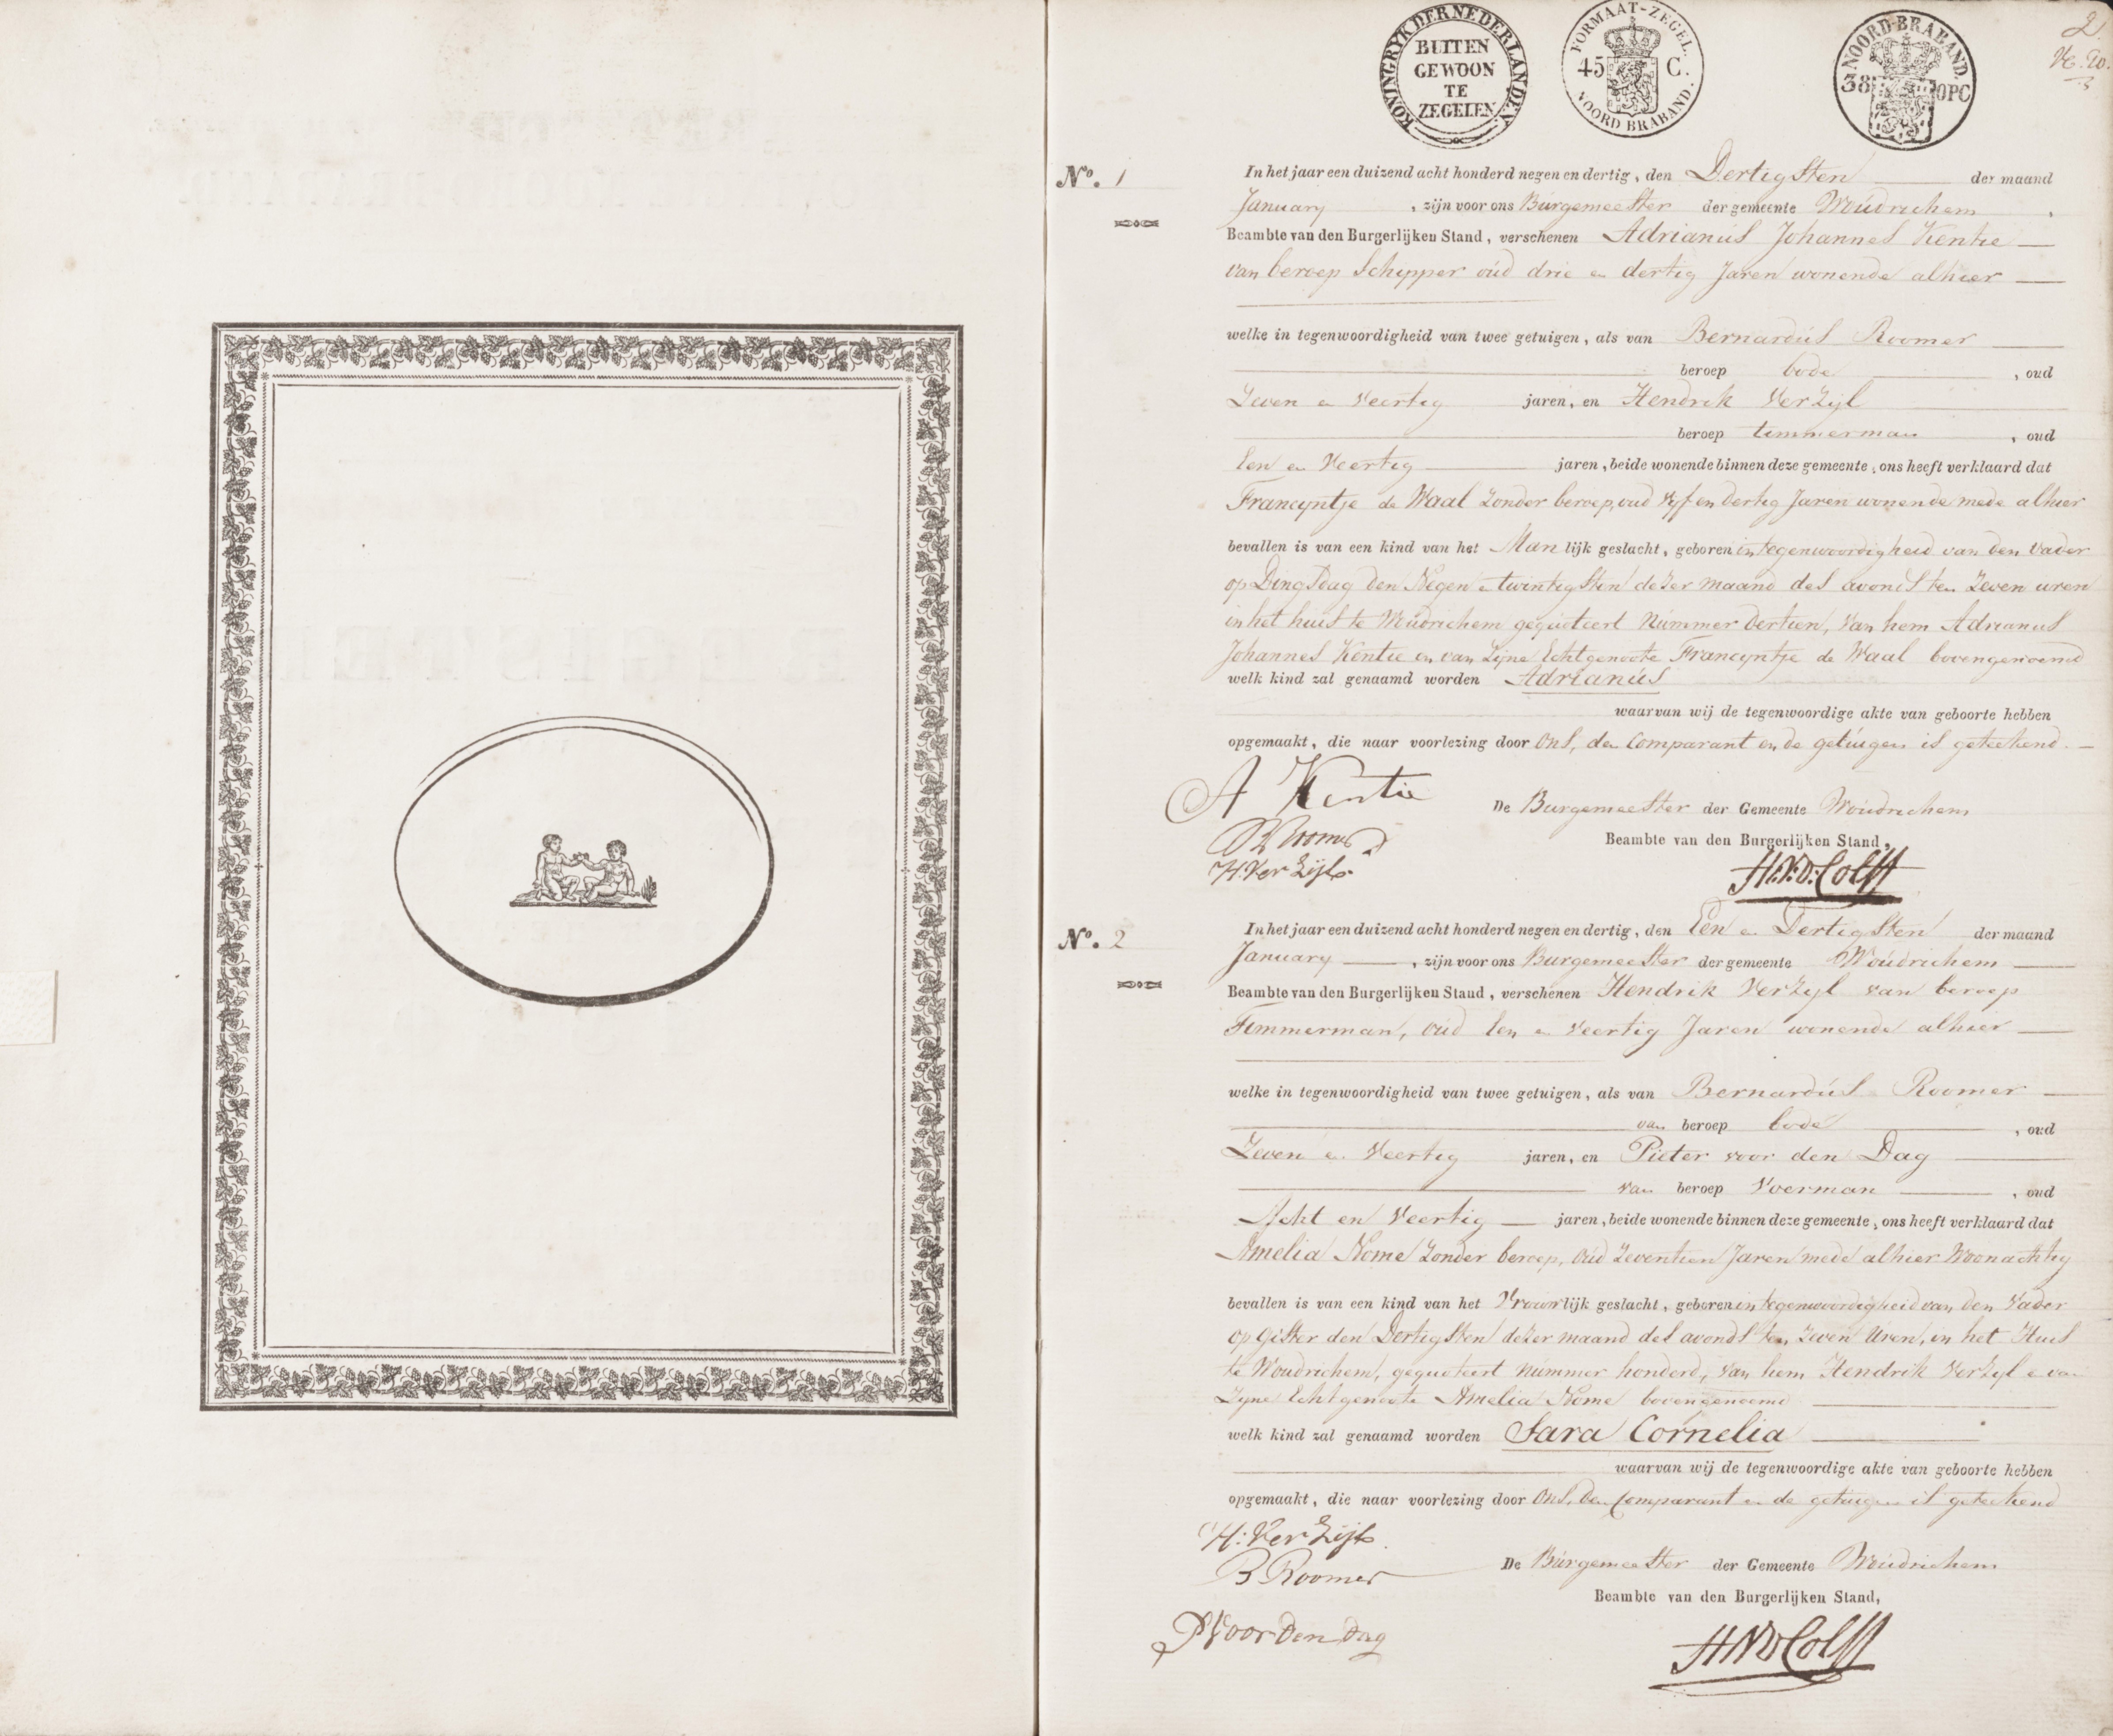 KONINGRYK DER NEDERLANDEN.
BUITEN
GEWOON
TE
ZEGELEN
FORMAAT-ZEGEL.
45 C.
NOORD BRABAND.
NOORD-BRABAND.
38 OPC
2
No. 1
In het jaar een duizend acht honderd negen en dertig, den Dertigsten der maand
January, zijn voor ons Burgemeester der gemeente Woudrichem,
Beambte van den Burgerlijken Stand, verschenen Adrianus Johannes Kentie
van beroep Schipper oud drie en dertig Jaren wonende alhier
welke in tegenwoordigheid van twee getuigen, als van Bernardus Roomer
beroep bode, oud
Zeven en Veertig jaren, en Hendrik VerZijl
beroep timmerman, oud
Een en Veertig jaren, beide wonende binnen deze gemeente, ons heeft verklaard dat
Francyntje de Waal Zonder beroep, oud Vyf en dertig Jaren wonende mede alhier
bevallen is van een kind van het Manlijk geslacht, geboren in tegenwoordigheid van den Vader
op Dingsdag den Negen en twintigsten dezer maand des avonds ten Zeven uren
in het huis te Woudrichem gequoteert Nummer dertien, Van hem Adrianus
Johannes Kentie en van Zyne Echtgenoote Francyntje de Waal bovengenoemd
welk kind zal genaamd worden Adrianus
waarvan wij de tegenwoordige akte van geboorte hebben
opgemaakt, die naar voorlezing door Ons, den Comparant en de getuigen is geteekend.
A Kentie
De Burgemeester der Gemeente Woudrichem
B Roomer
Beambte van den Burgerlijken Stand,
H. Ver Zijl
H.N.D. Colff
No. 2
In het jaar een duizend acht honderd negen en dertig, den Een en Dertigsten der maand
January, zijn voor ons Burgemeester der gemeente Woudrichem
Beambte van den Burgerlijken Stand, verschenen Hendrik VerZyl van beroep
Timmerman, oud Een en Veertig Jaren wonende alhier
welke in tegenwoordigheid van twee getuigen, als van Bernardus Roomer
van beroep bode, oud
Zeven en Veertig jaren, en Pieter voor den Dag
van beroep Voerman, oud
Acht en Veertig jaren, beide wonende binnen deze gemeente, ons heeft verklaard dat
Amelia Nome Zonder beroep, Oud Zeventien Jaren mede alhier Woonachtig
bevallen is van een kind van het Vrouwlijk geslacht, geboren in tegenwoordigheid van den Vader
op Gister den Dertigsten dezer maand des avonds ten Zeven Uren, in het Huis
te Woudrichem, gequoteert Nummer honderd, Van hem Hendrik VerZyl en van
Zyne Echtgenoote Amelia Nome bovengenoemd
welk kind zal genaamd worden Sara Cornelia
waarvan wij de tegenwoordige akte van geboorte hebben
opgemaakt, die naar voorlezing door Ons, den Comparant en de getuigen is geteekend
H: Ver Zijl
B Roomer
De Burgemeester der Gemeente Woudrichem
Beambte van den Burgerlijken Stand,
P Voor den dag
H N D Colff